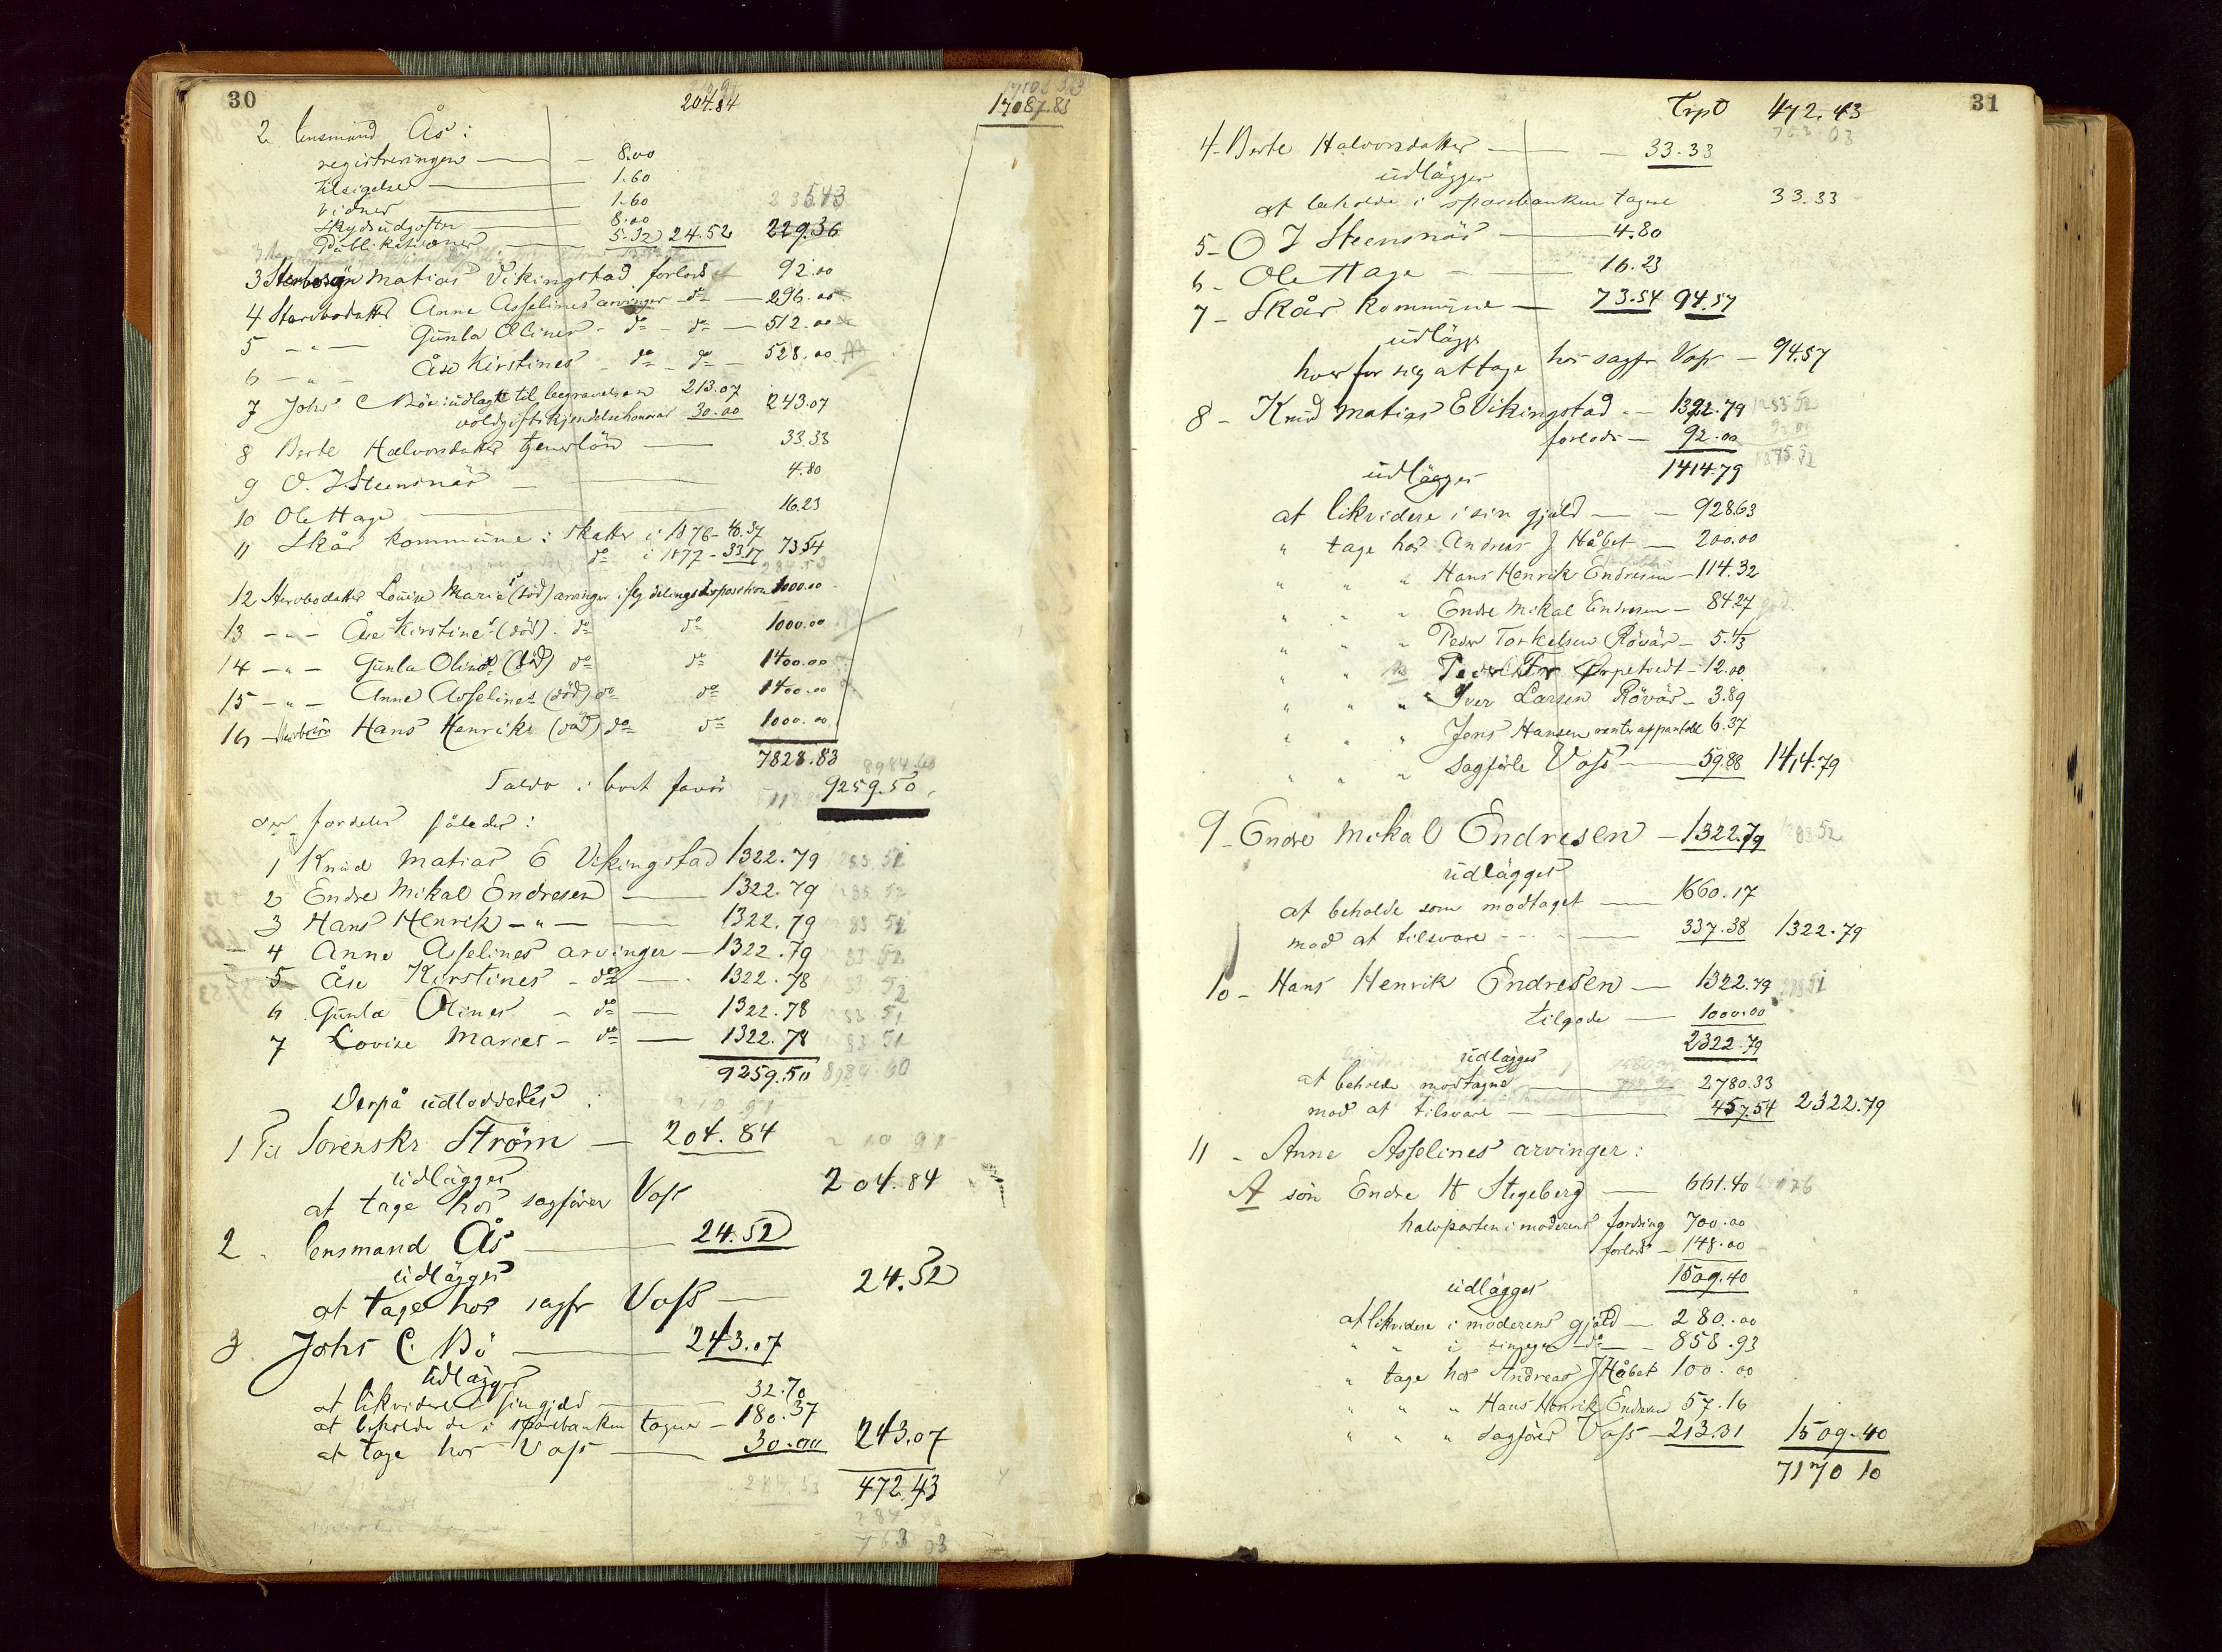 30
204.84 17087.83
2 lensmand Ås:
registreringen — 8.00
tilsigelse — 1.60
vidner — 1.60
skydsudgifter 8.00
Publikationer — 5.32 24.52 229.36
3 Matias Vikingstad forlods 92.00
4 Stervbodatter Anne Asselines arvinger do — 296.00
5 — " — Gunla Olines - do - do — 512.00
6 — " — Åse Kirstines - do - do — 528.00
7 Johs C Bö: udlagt til begravelsen 213.07
voldgiftskjendelseshonorar 30.00 243.07
8 Berte Halvorsdatter tjenerlön — 33.33
9 O. J. Steensnäs — 4.80
10 Ole Hage — 16.23
11 Skåre kommune: skatter i 1876 - 40.37
do i 1877 - 33.17 73.54
12 Stervbodatter Lovise Maries (död) arvinger iflg delingsdisposition 1000.00
13 — " — Åse Kirstines (död) do do 1000.00
14 — " — Gunla Olines (död) do do 1400.00
15 — " — Anne Asselines (död) do do 1400.00
16 — Hans Henriks (död) do do 1000.00
7828.83
Saldo i boets favör 9259.50
der fordeles således:
1 Knud Matias E Vikingstad 1322.79
2 Endre Mikal Endresen — 1322.79
3 Hans Henrik — " — 1322.79
4 Anne Asselines arvinger — 1322.79
5 Åse Kirstines - do — 1322.78
6 Gunla Olines - do — 1322.78
7 Lovise Maries - do — 1322.78
9259.50
Derpå udloddedes:
1 Til Sorenskr. Ström — 204.84
udlägges
at tage hos sagförer Voss 204.84
2 lensmand Ås — 24.52
udlägges
at tage hos sagfr Voss — 24.52
3 Johs C. Bö — 243.07
udlägges
at likvidere i sin gjeld — 32.70
at beholde de i sparebanken tagne — 180.37
at tage hos Voss — 30.00 243.07
472.43
31
Trpt 472.43
4 - Berte Halvorsdatter — 33.33
udlägges
at beholde i sparebanken tagne 33.33
5 - O J Steensnäs — 4.80
6 - Ole Hage — 16.23
7 - Skåre kommune — 73.54 94.57
udlägges
hver for sig at tage hos sagfr Voss — 94.57
8 - Knud Matias E Vikingstad — 1322.79
forlods — 92.00
1414.79
udlägges
at likvidere i sin gjäld — 928.63
" tage hos Andreas J Håbet — 200.00
" " " Hans Henrik Endresen — 114.32
" " " Endre Mikal Endresen — 84.27
" " " Peder Torkelsen Rövär — 5.43
" " " Peder Tor Örpetvedt — 12.00
" " " Iver Larsen Rövär — 3.89
" " " Jens Hansen 6.37
" " " Sagförer Voss — 59.88 1414.79
9 - Endre Mikal Endresen — 1322.79
udlägges
at beholde som modtaget — 1660.17
mod at tilsvare — 337.38 1322.79
10 - Hans Henrik Endresen — 1322.79
tilgode — 1000.00
2322.79
udlägges
at beholde modtagne — 2780.33
mod at tilsvare — 457.54 2322.79
11 - Anne Asselines arvinger:
A sön Endre H Stegeberg — 661.40
halvparten i moderens fordring 700.00
forlods — 148.00
1509.40
udlägges
at likvidere i moderens gjäld — 280.00
" " i sin egen do — 858.93
" tage hos Andreas J Håbet 100.00
" " " Hans Henrik Endresen 57.16
" " " Sagförer Voss — 213.31 1509.40
7170 10